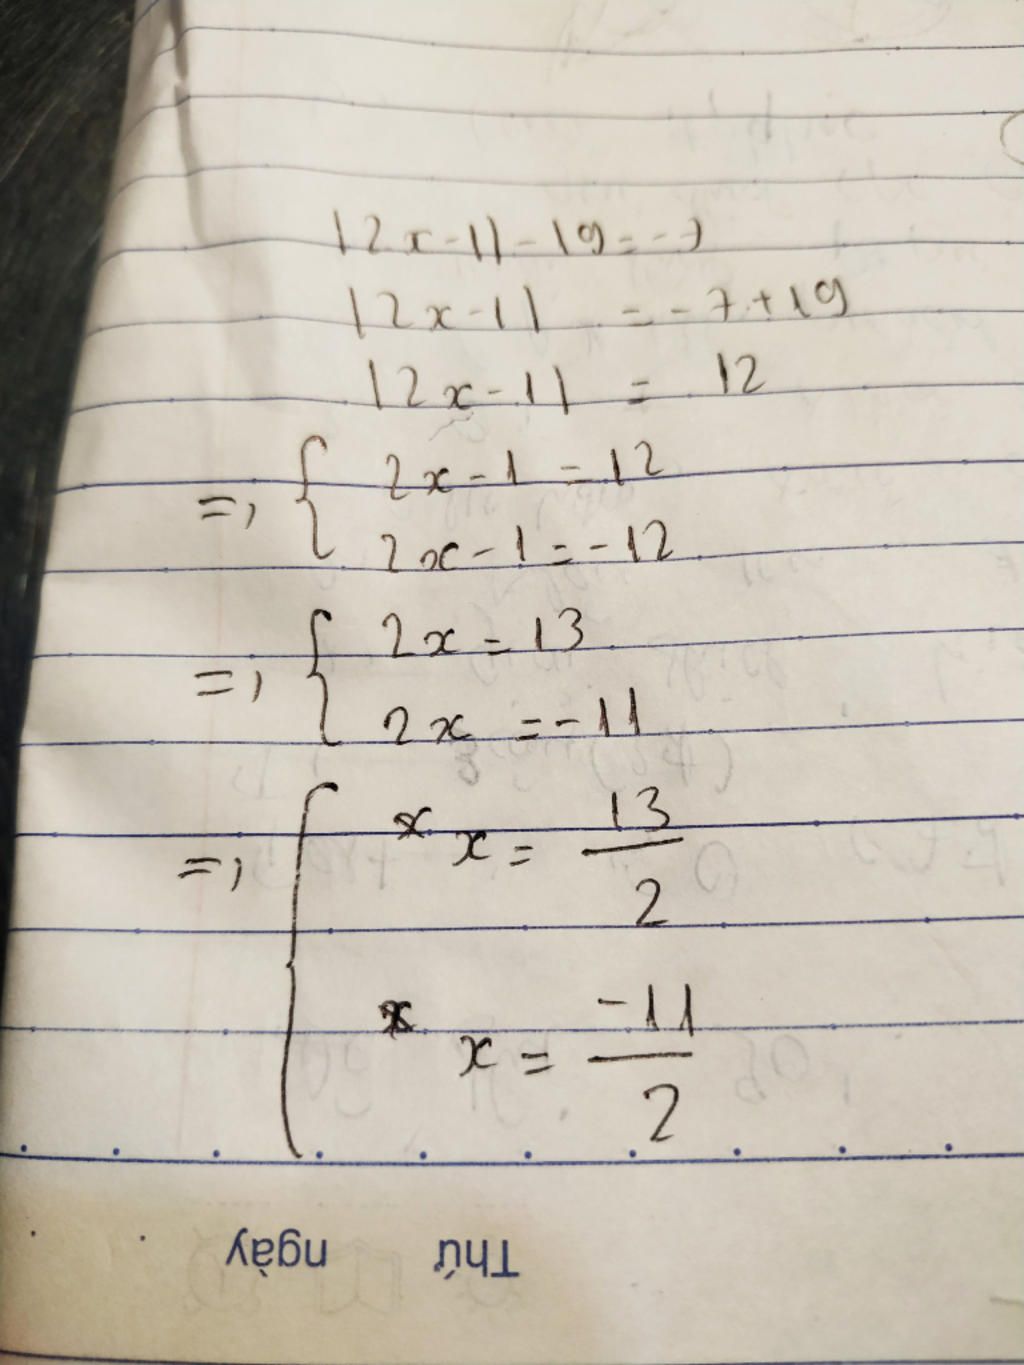 |2x-1|-19=-7
|2x-1| =-7+19
|2x-1| = 12
=> { 2x-1=12
2x-1=-12
=> { 2x=13
2x=-11
=> { x x = 13/2
x x = -11/2
Thứ ngày